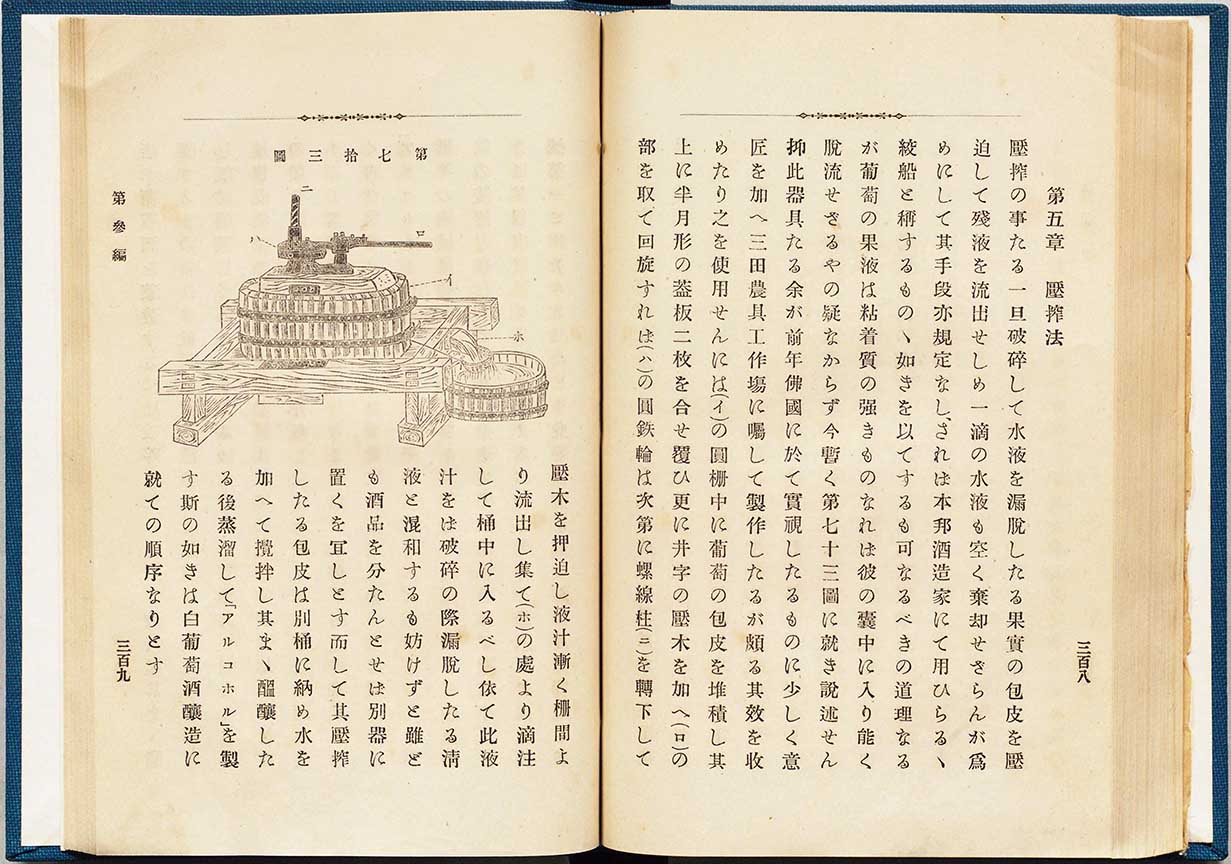 第五章　壓搾法
壓搾の事たる一旦破碎して水液を漏脱したる果實の包皮を壓
迫して殘液を流出せしめ一滴の水液も空く棄却せざらんが爲
めにして其手段亦規定なし、されは本邦酒造家にて用ひらるゝ
絞船と稱するものゝ如きを以てするも可なるべきの道理なる
が葡萄の果液は粘着質の强きものなれは彼の囊中に入り能く
脫流せざるやの疑なからず今暫く第七十三圖に就き説述せん
抑此器具たる余が前年佛國に於て實視したるものに少しく意
匠を加へ三田農具工作塲に囑して製作したるが頗る其效を收
めたり之を使用せんには(イ)の圓柵中に葡萄の包皮を堆積し其
上に半月形の葢板二枚を合せ覆ひ更に井字の壓木を加へ(ロ)の
部を取て回旋すれは(ハ)の圓鉄輪は次第に螺線柱(ニ)を轉下して
三百八
第七拾三圖
ニ
ハ
ロ
イ
ホ
壓木を押迫し液汁漸く柵間よ
り流出し集て(ホ)の處より滴注
して桶中に入るべし依て此液
汁をは破碎の際漏脱したる淸
液と混和するも妨けずと雖ど
も酒品を分たんとせは別器に
置くを宜しとす而して其壓搾
したる包皮は別桶に納め水を
加へて攪拌し其まゝ醞釀した
る後蒸溜して「アルコホル」を製
す斯の如きは白葡萄酒釀造に
就ての順序なりとす
第參編
三百九